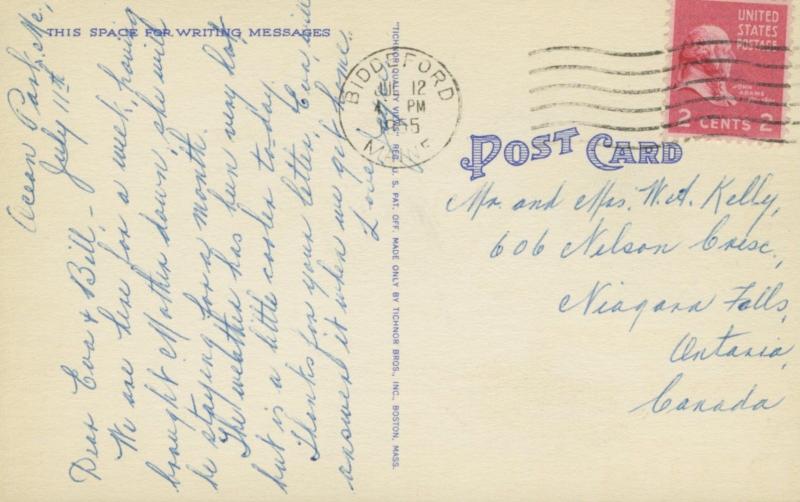 THIS SPACE FOR WRITING MESSAGES
Ocean Park, Me,
July 11th
Dear Eva & Bill, -
We are here for a week, having
brought Mother down, she will
be staying for a month.
The weather has been very hot
but is a little cooler to-day.
Thanks for your letter, Eva, will
answer it when we get home.
Love
"TICHNOR QUALITY VIEWS," REG. U. S. PAT. OFF. MADE ONLY BY TICHNOR BROS., INC., BOSTON, MASS.
BIDDEFORD
JUL 12
PM
1955
MAINE
UNITED
STATES
POSTAGE
JOHN ADAMS
2 CENTS 2
POST CARD
Mr. and Mrs. W.A. Kelly,
606 Nelson Cresc.,
Niagara Falls,
Ontario,
Canada